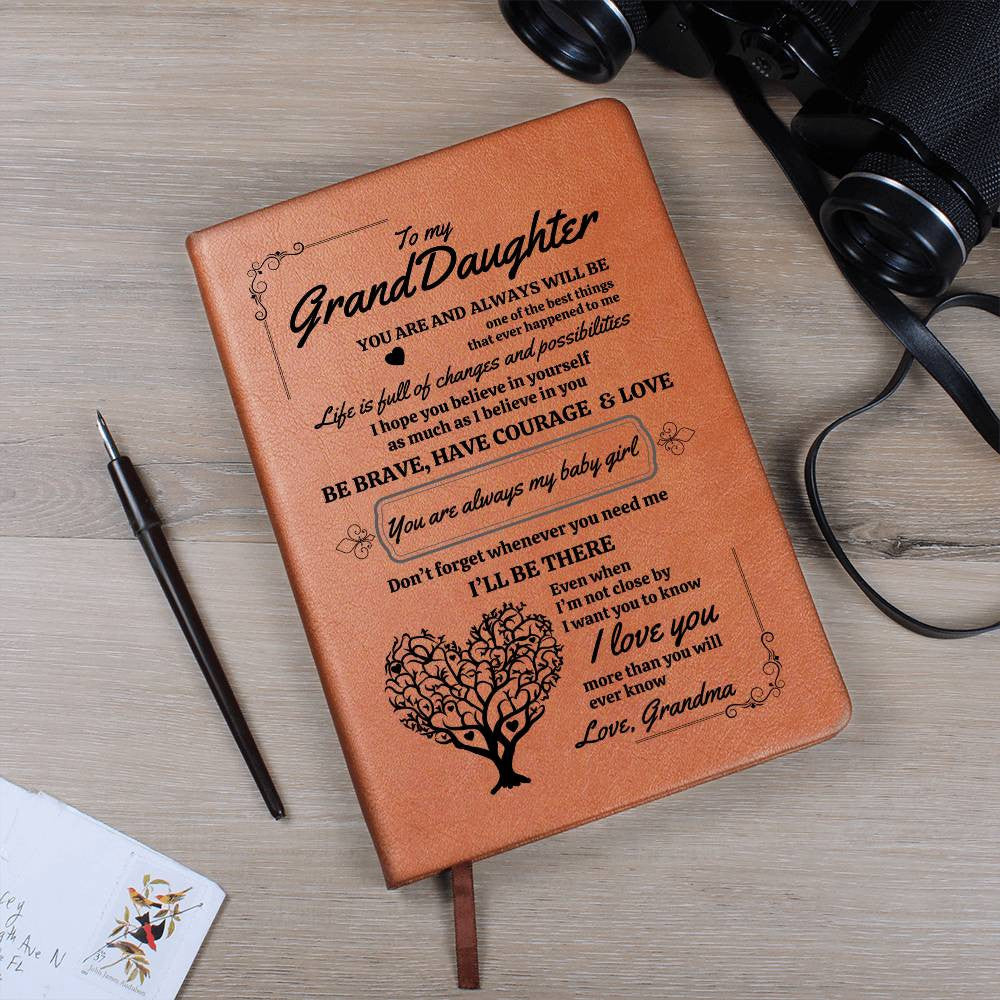 To my
GrandDaughter
YOU ARE AND ALWAYS WILL BE
one of the best things
that ever happened to me
Life is full of changes and possibilities
I hope you believe in yourself
as much as I believe in you
BE BRAVE, HAVE COURAGE & LOVE
You are always my baby girl
Don't forget whenever you need me
I'LL BE THERE
Even when
I'm not close by
I want you to know
I love you
more than you will
ever know
Love, Grandma
Ave N
FL
37
John James Audubon